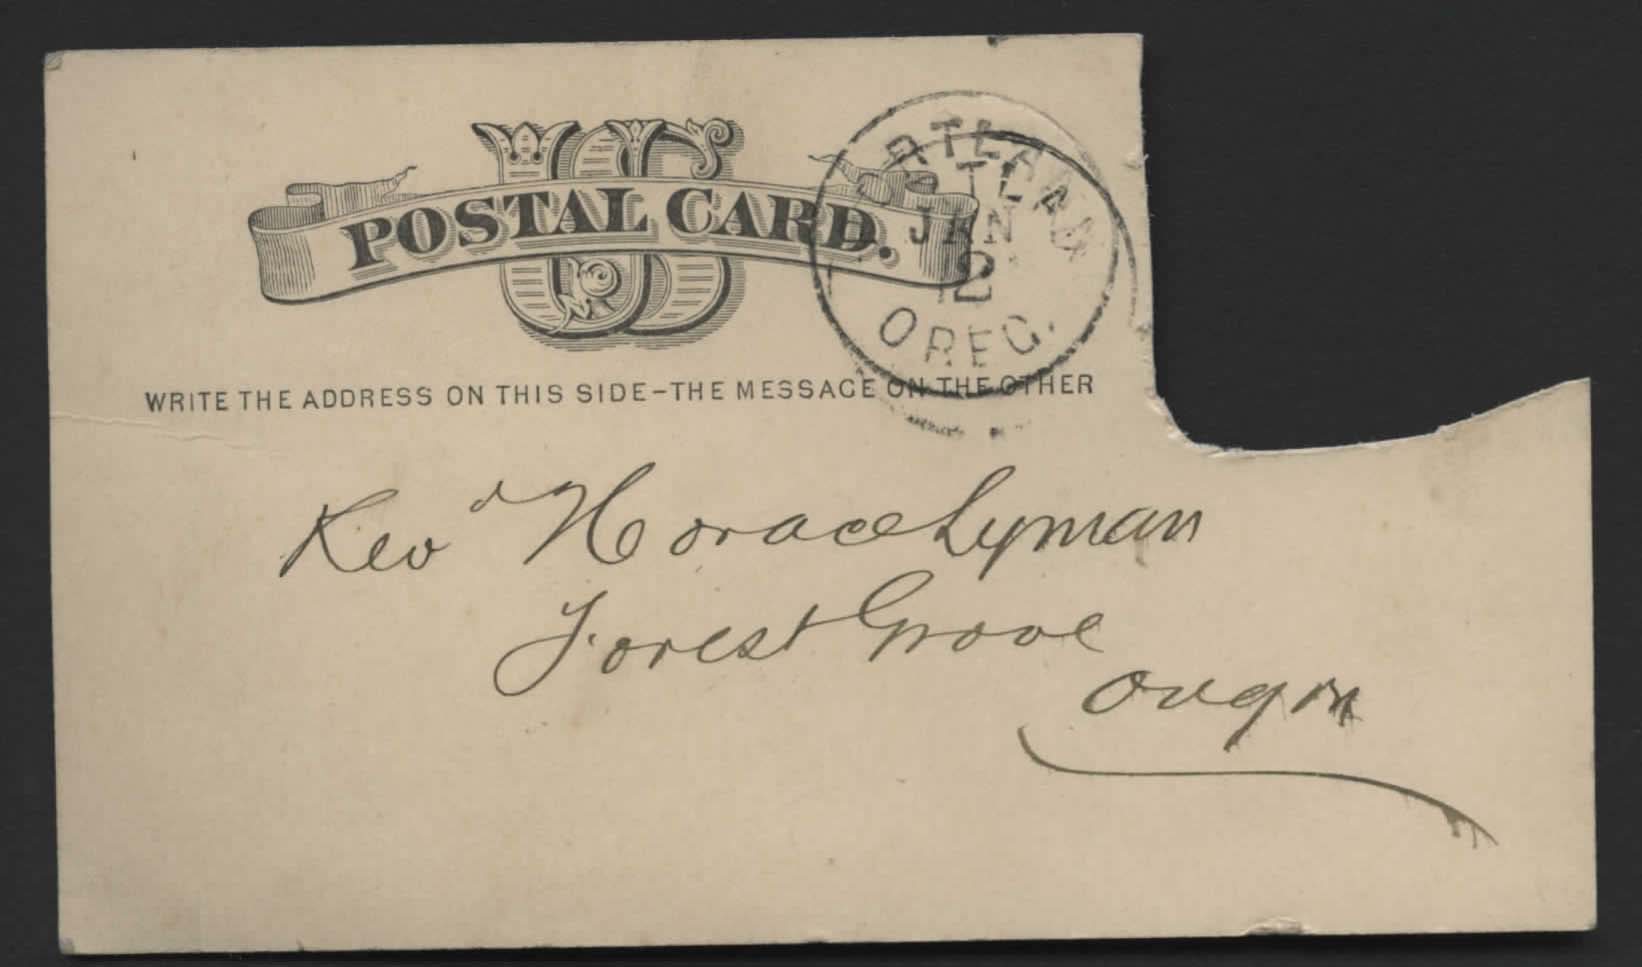 US
POSTAL CARD.
PORTLAND
JAN
2
OREG.
WRITE THE ADDRESS ON THIS SIDE-THE MESSAGE ON THE OTHER
Revd Horace Lyman
Forest Grove
Oregon